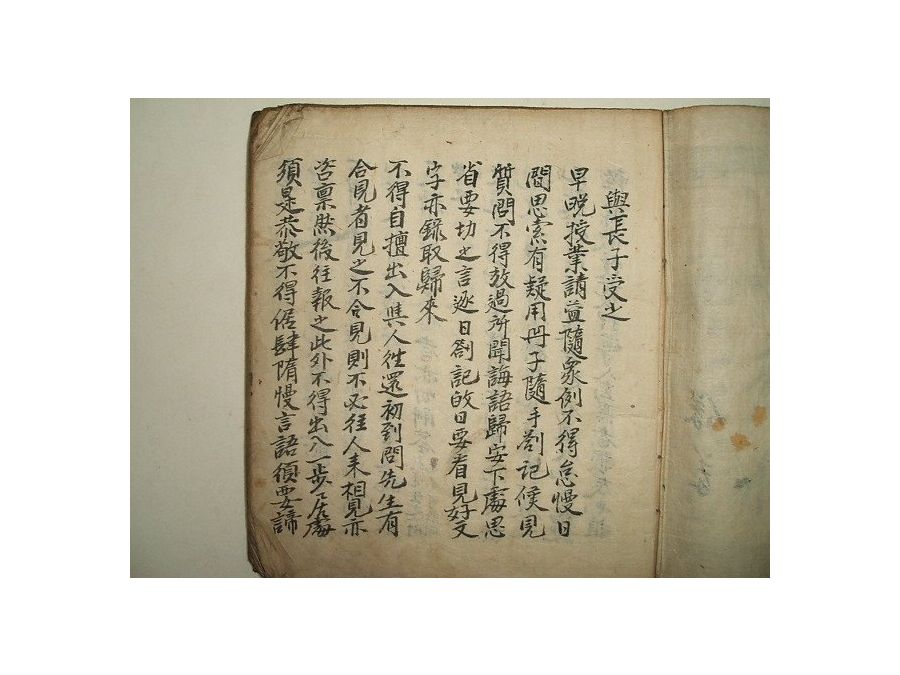 與長子受之
早晩授業請益隨衆例不得怠慢日
間思索有疑用冊子隨手劄記候見
質問不得放過所聞誨語歸安下處思
省要切之言逐日劄記的日要看見好文
字亦錄取歸來
不得自擅出入與人往還初到問先生有
合見者見之不合見則不必往人来相見亦
咨禀然後往報之此外不得出入一步居處
須是恭敬不得倨肆隋慢言語須要諦